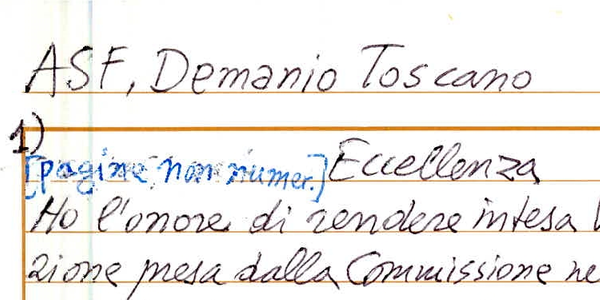 ASF, Demanio Toscano
1)
[pagine non numer.] Eccellenza
Ho l'onore di rendere intesa
zione presa dalla Commissione ne